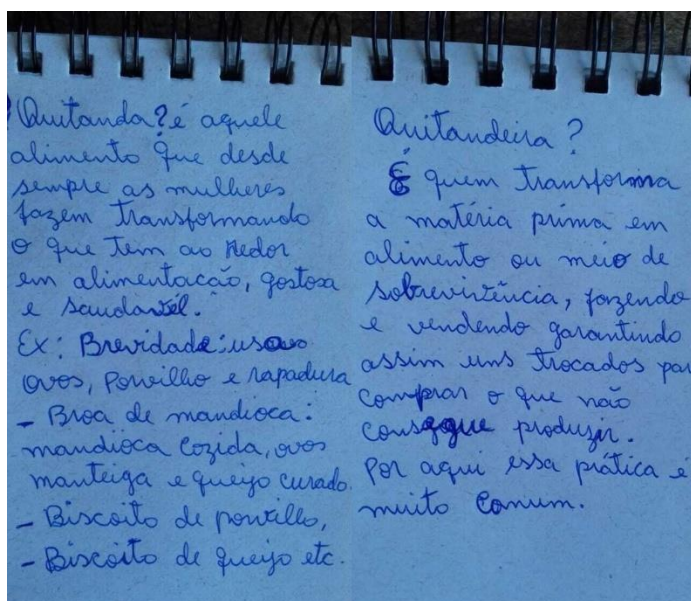 Quitanda? é aquele
alimento que desde
sempre as mulheres
fazem transformando
o que tem ao redor
em alimentacção, gostosa
e saudavél.
Ex: Brevidade: usavo
ovos, Ponvilho e rapadura
- Broa de mandioca:
mandioca cozida, ovos
manteiga e queijo curado.
- Biscoito de ponvilho,
- Biscoito de queijo etc.
Quitandeira?
É quem transforma
a matéria prima em
alimento ou meio de
sobrevivência, fazendo
e vendendo garantindo
assim uns trocados par
comprar o que não
consegue produzir.
Por aqui essa prática é
muito comum.